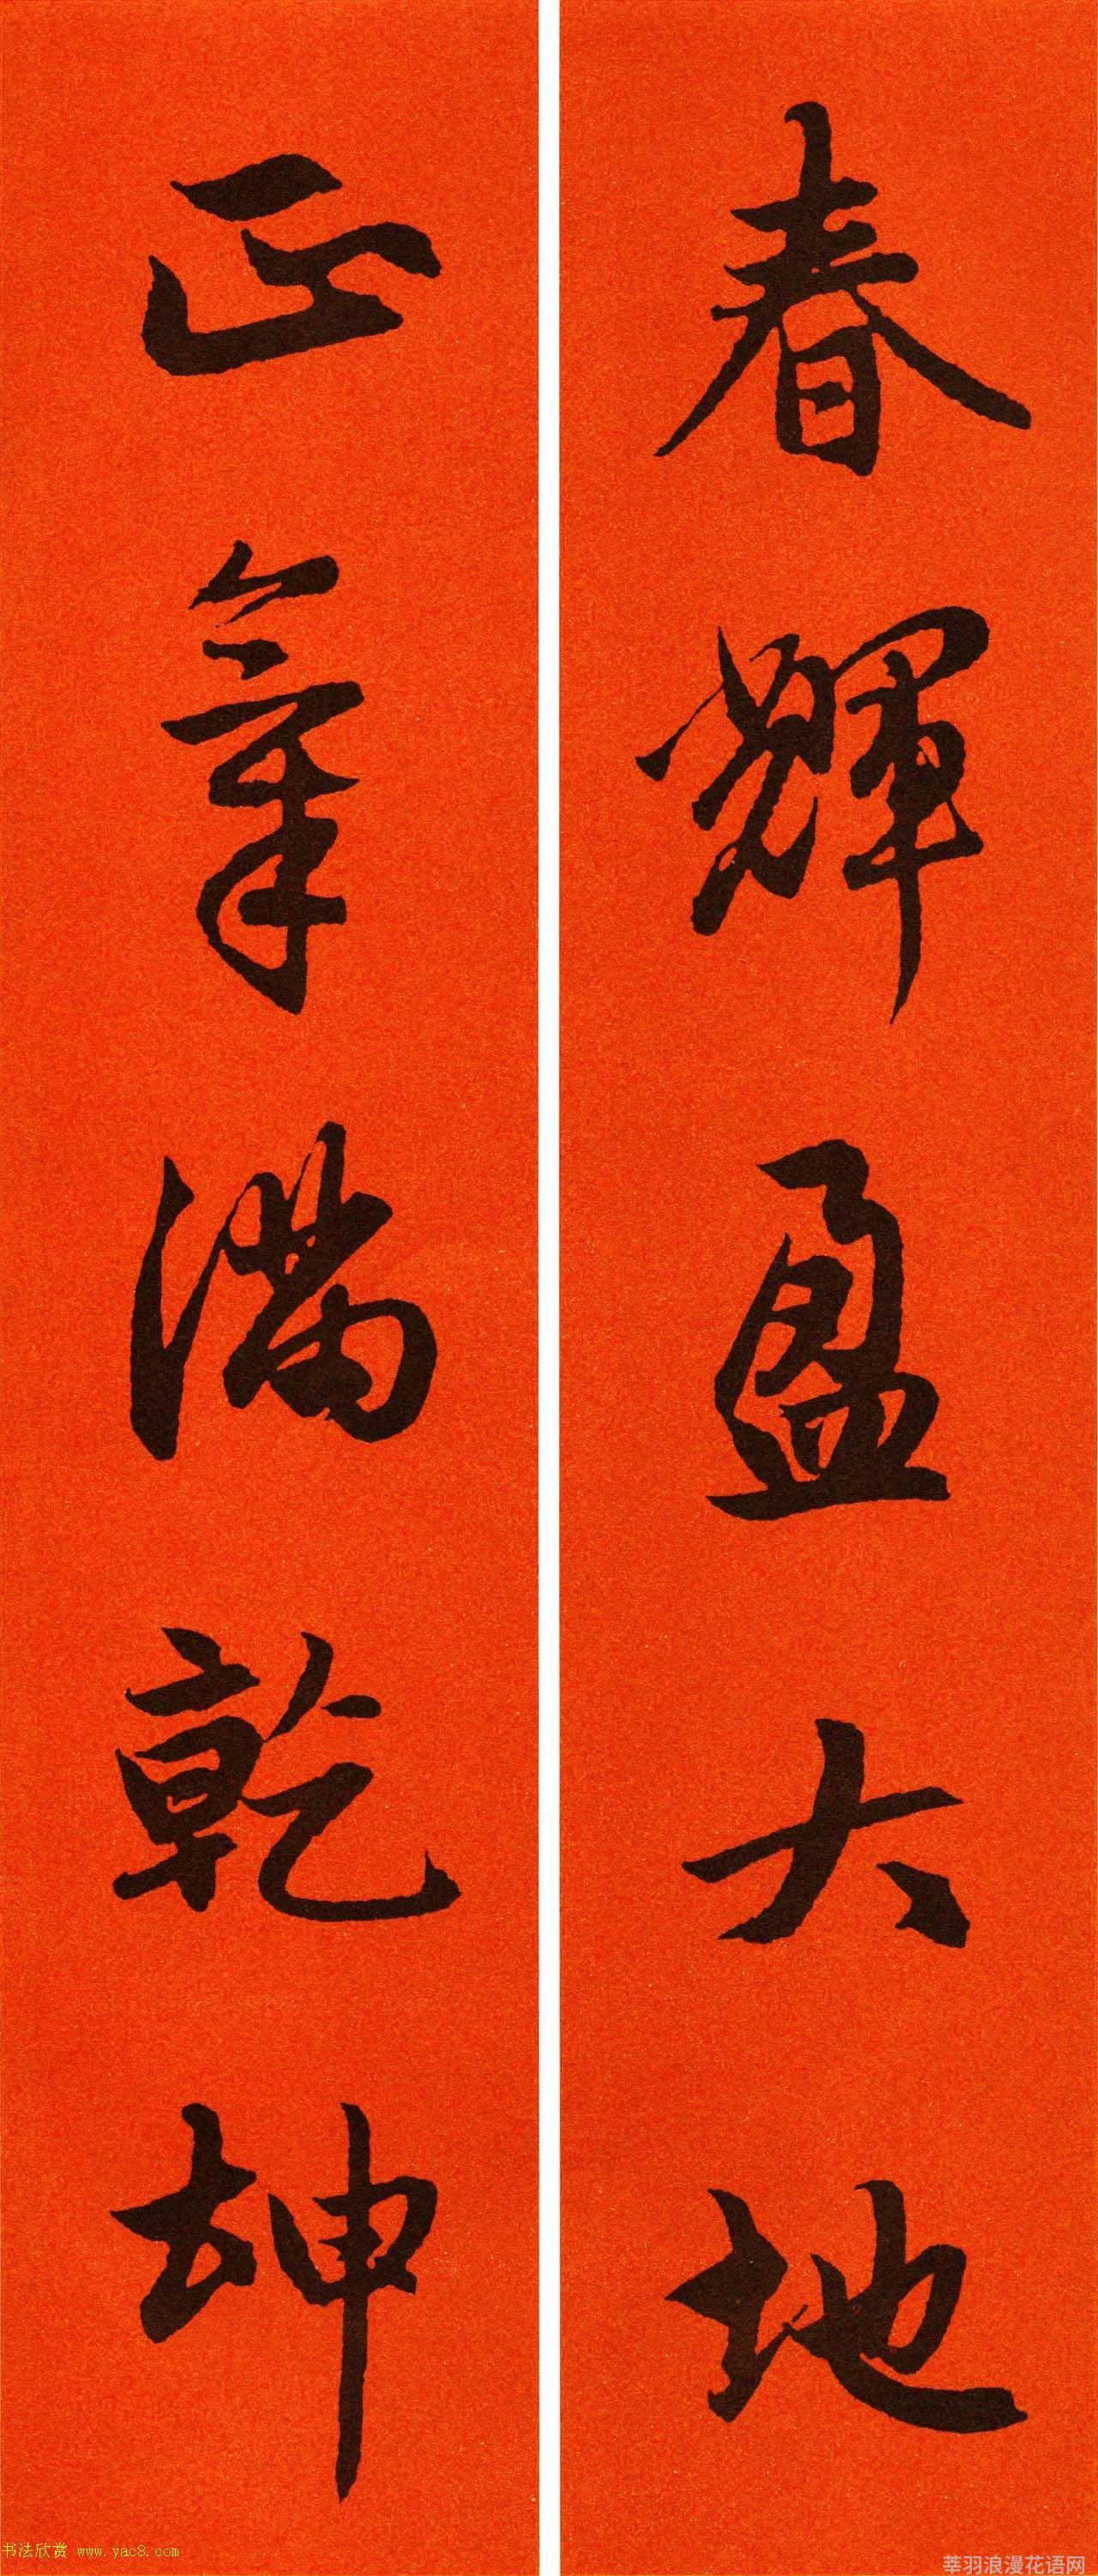 春輝盈大地
正氣滿乾坤
书法欣赏 www.yac8.com
莘羽浪漫花语网